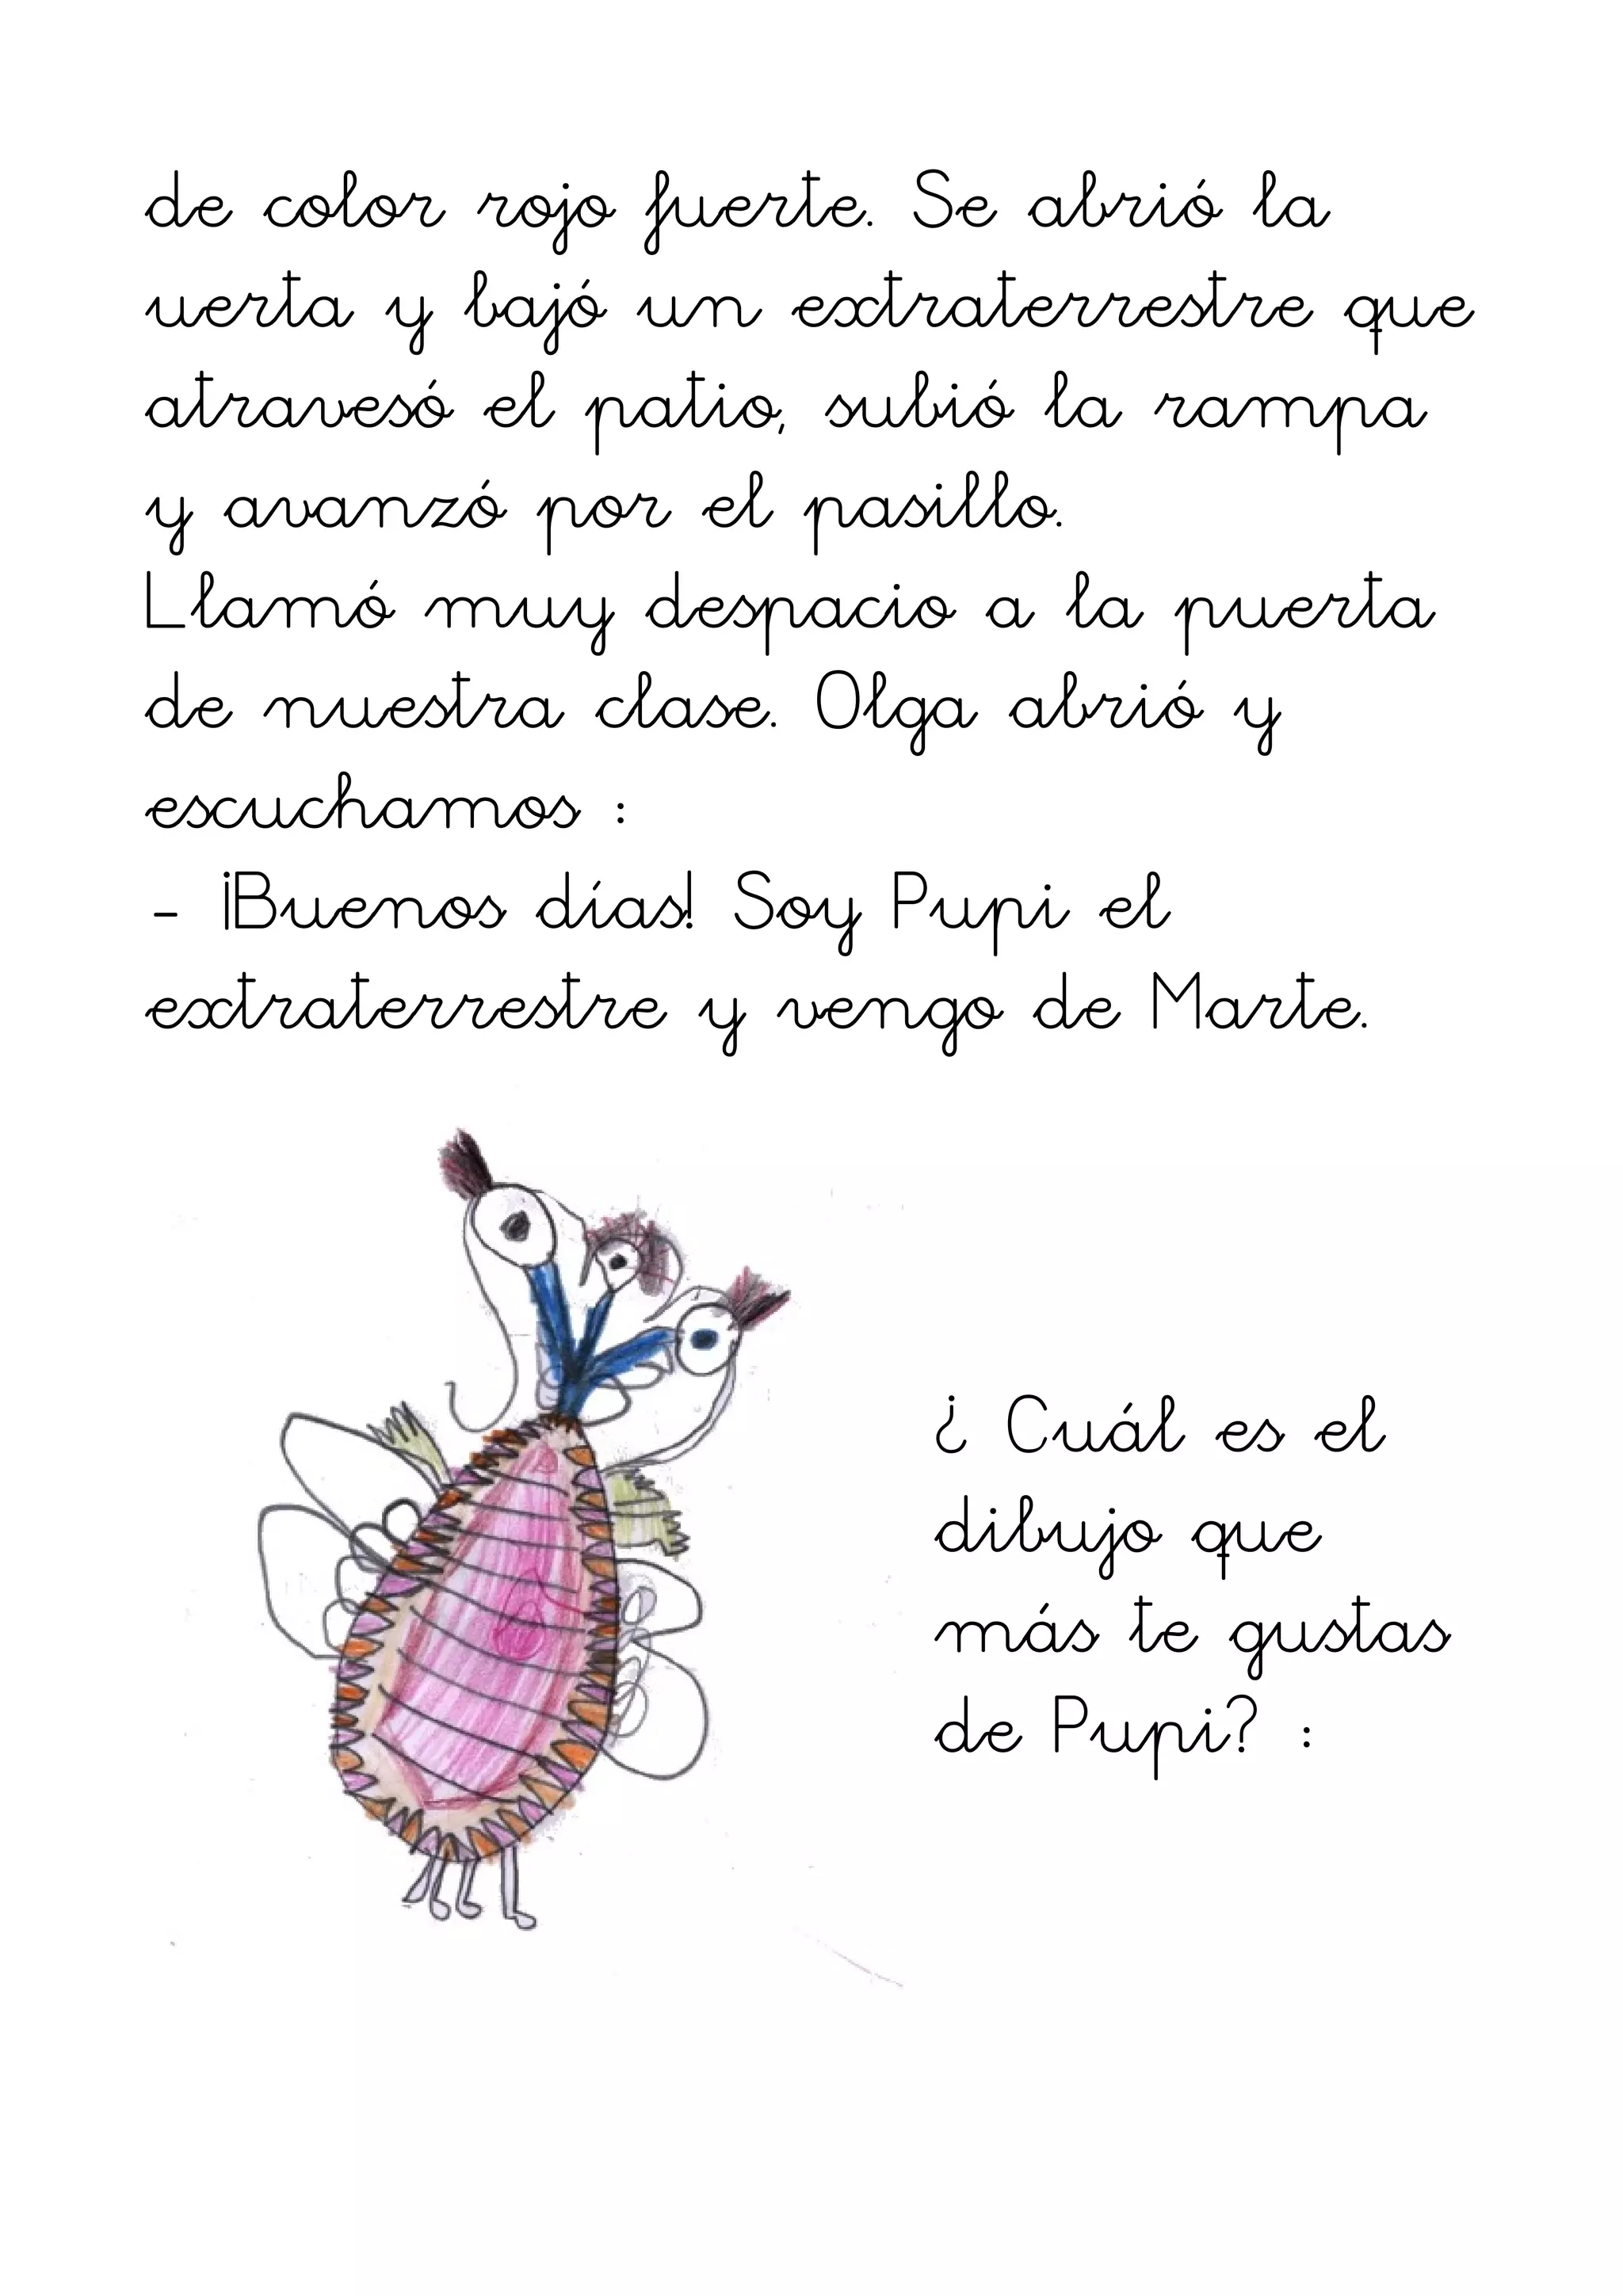 de color rojo fuerte. Se abrió la
uerta y bajó un extraterrestre que
atravesó el patio, subió la rampa
y avanzó por el pasillo.
Llamó muy despacio a la puerta
de nuestra clase. Olga abrió y
escuchamos :
- ¡Buenos días! Soy Pupi el
extraterrestre y vengo de Marte.
¿ Cuál es el
dibujo que
más te gustas
de Pupi? :